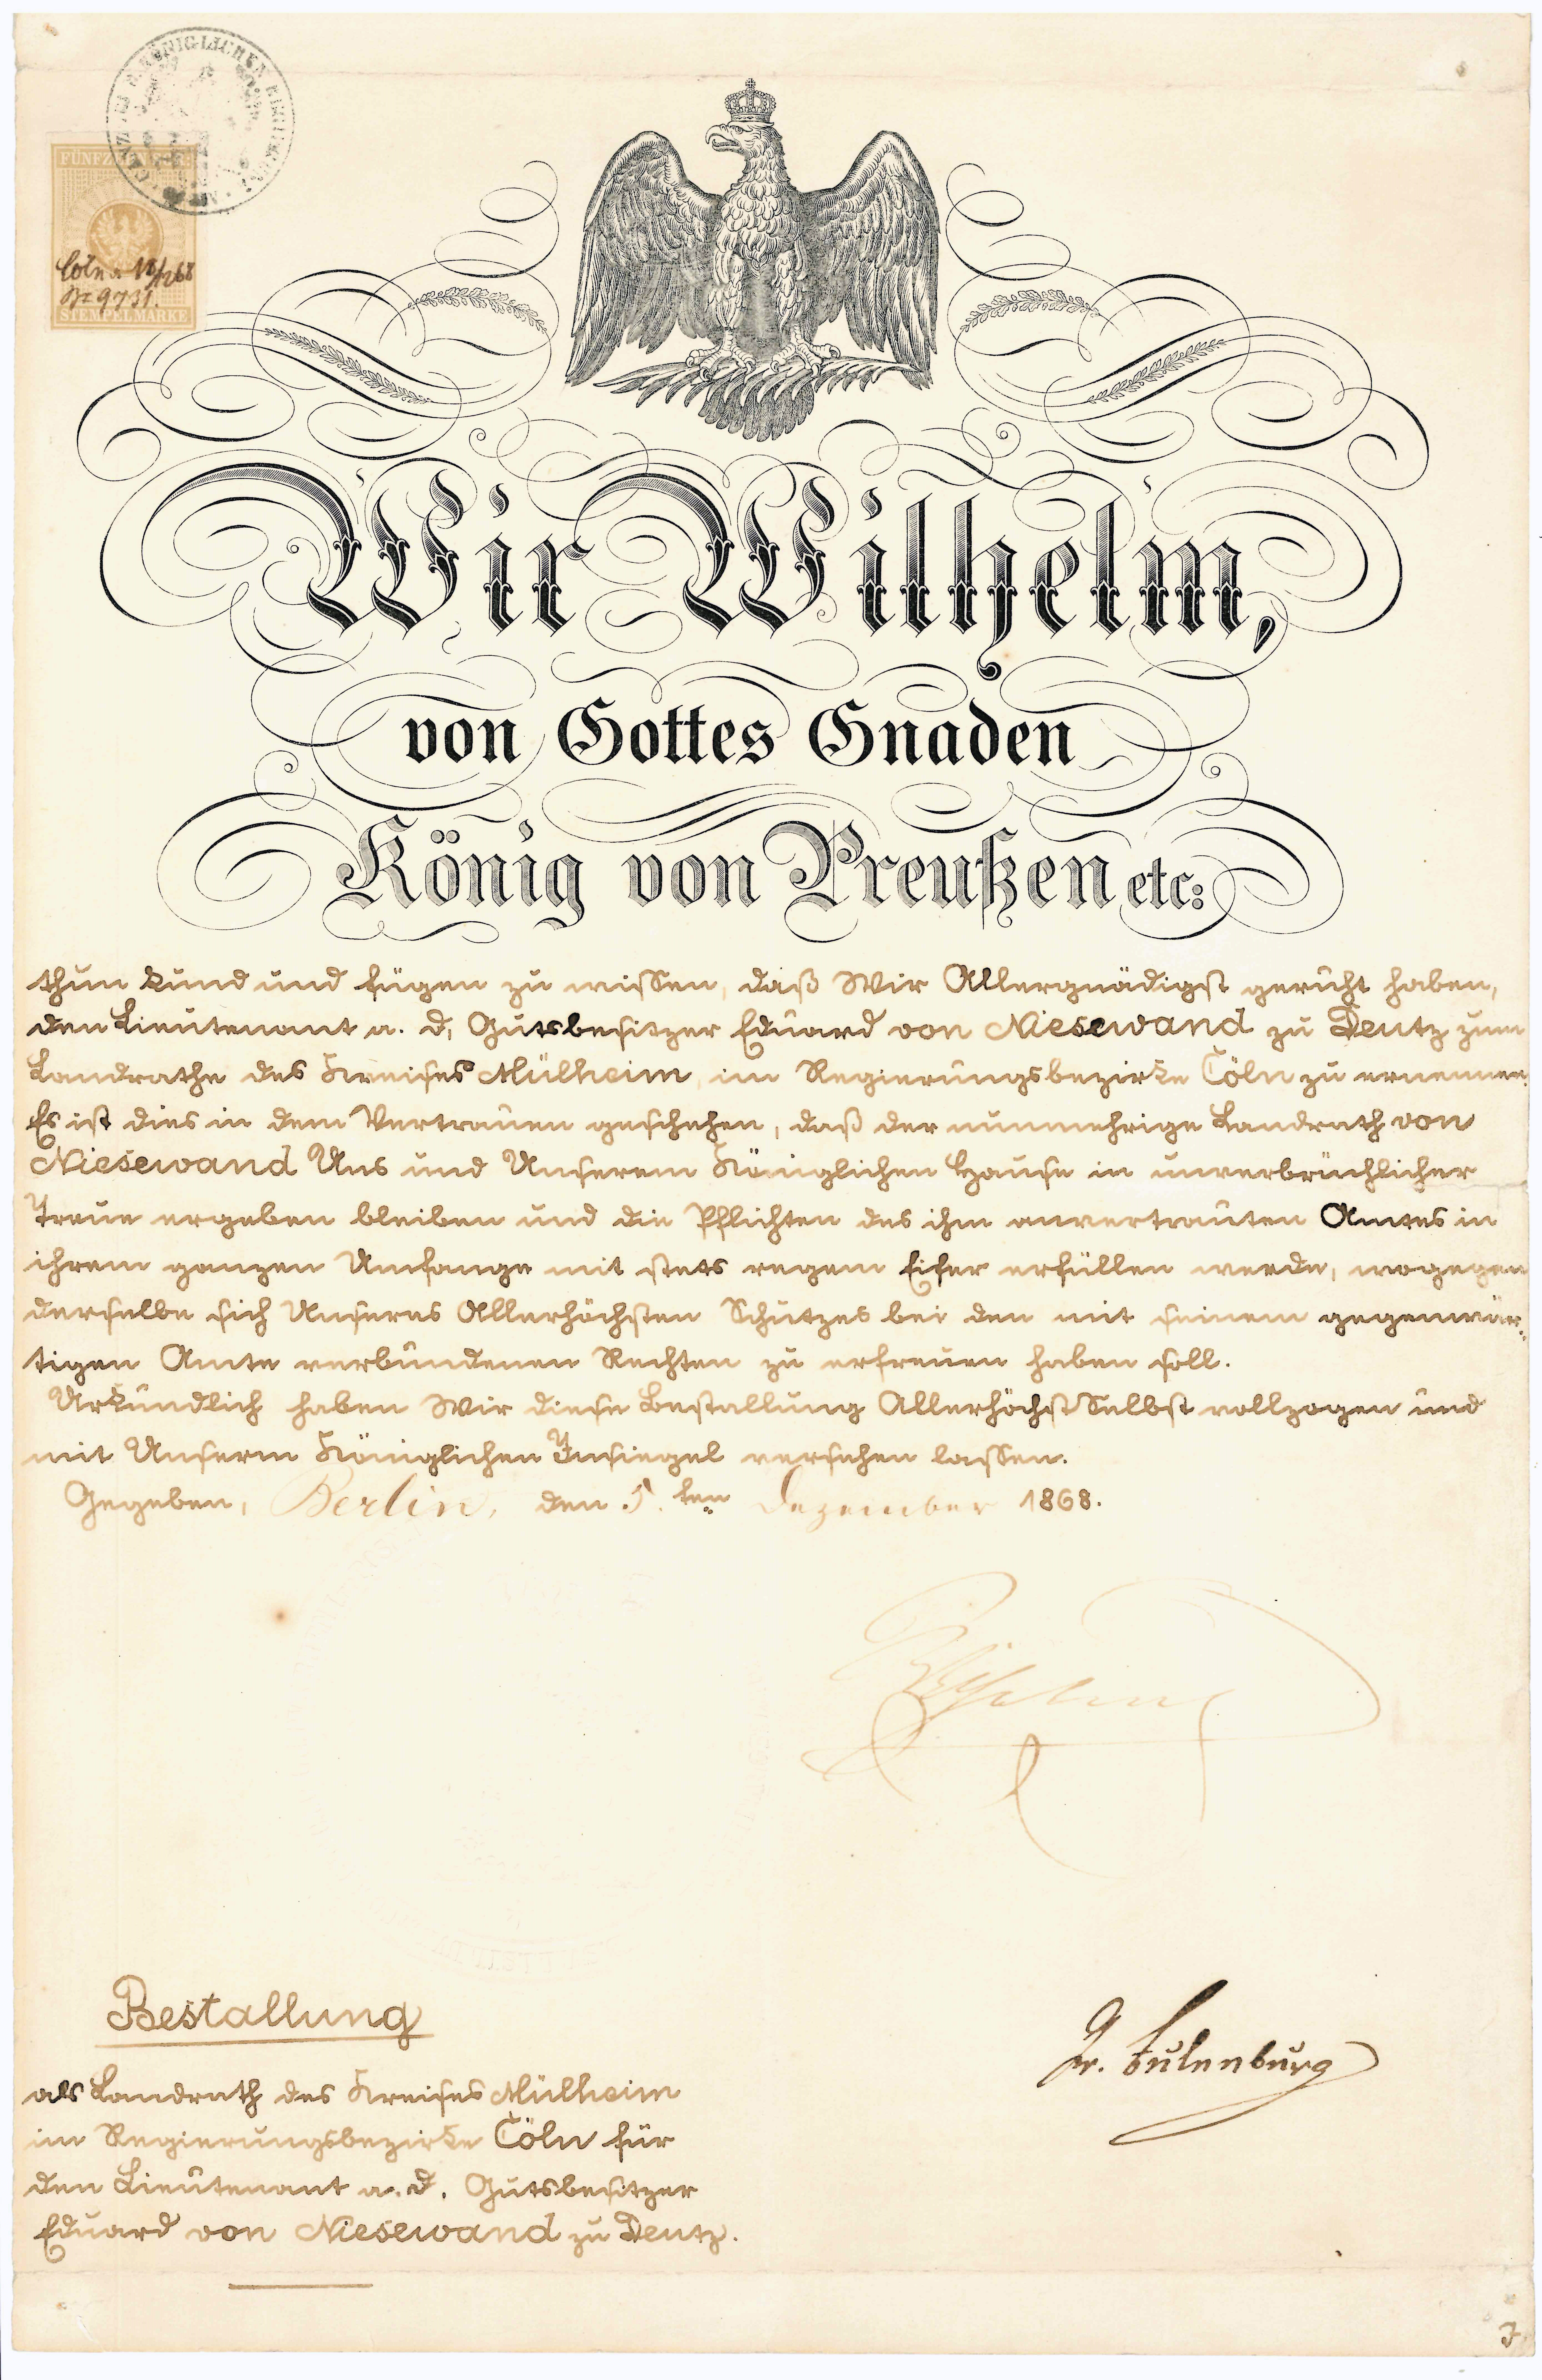 FÜNFZEHN SGR:
Cöln 18/12 68
No 9731.
STEMPELMARKE
Wir Wilhelm,
von Gottes Gnaden
König von Preußen etc:
thun kund und fügen zu wissen, daß Wir Allergnädigst geruht haben,
den Lieutenant a. d, Gutsbesitzer Eduard von Niesewand zu Deutz zum
Landrathe des Kreises Mülheim im Regierungsbezirke Cöln zu ernennen.
Es ist dies in dem Vertrauen geschehen, daß der nunmehrige Landrath von
Niesewand Uns und Unserem Königlichen Hause in unverbrüchlicher
Treue ergeben bleiben und die Pflichten des ihm anvertrauten Amtes in
ihrem ganzen Umfange mit stets regem Eifer erfüllen werde, wogegen
derselbe sich Unseres Allerhöchsten Schutzes bei den mit seinem gegenwär-
tigen Amte verbundenen Rechten zu erfreuen haben soll.
Urkundlich haben Wir diese Bestallung AllerhöchstSelbst vollzogen und
mit Unserm Königlichen Insiegel versehen lassen.
Gegeben, Berlin, den 5.ten Dezember 1868.
Wilhelm
Gr. Eulenburg
Bestallung
als Landrath des Kreises Mülheim
im Regierungsbezirke Cöln für
den Lieutenant a. d. Gutsbesitzer
Eduard von Niesewand zu Deutz.